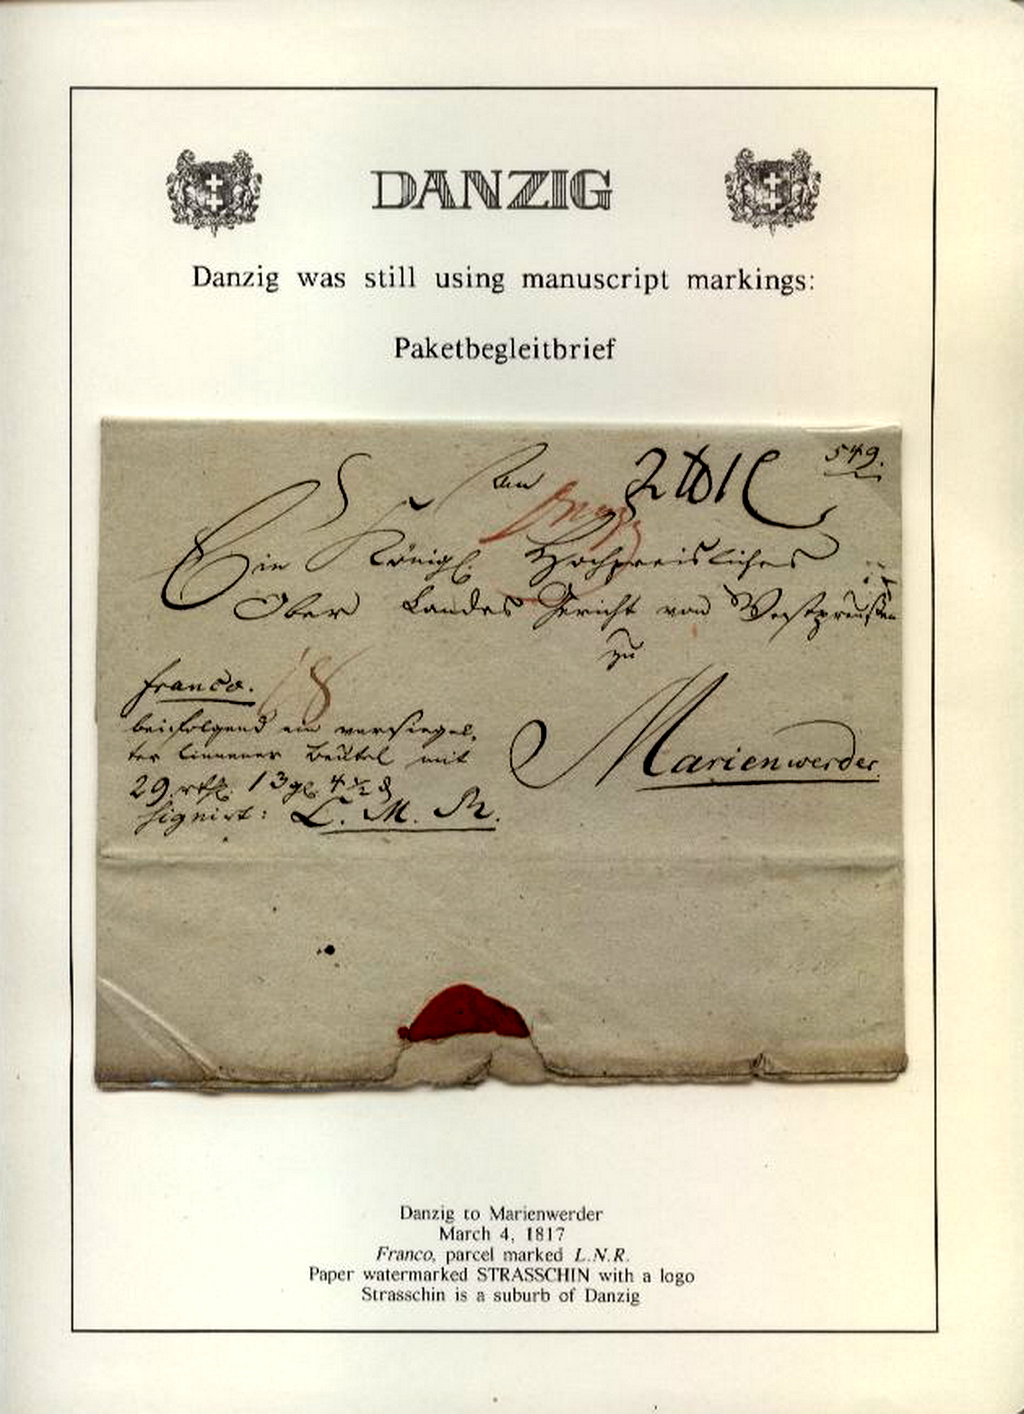 DANZIG
Danzig was still using manuscript markings:
Paketbegleitbrief
549.
An
Danzig
Ein Königl. Hochpreisliches
Ober Landes Gericht von Westpreußen
zu
franco.
18
Marienwerder
beifolgend ein versiegel,
ter linnener Beutel mit
29 rthl. 13 gl. 4 ½ d
signirt: L. M. R.
Danzig to Marienwerder
March 4, 1817
Franco, parcel marked L.N.R.
Paper watermarked STRASSCHIN with a logo
Strasschin is a suburb of Danzig